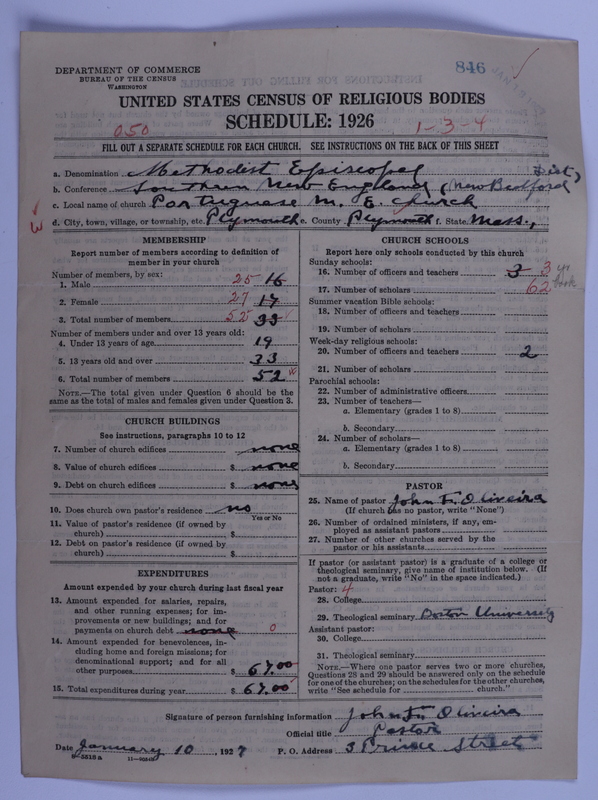 DEPARTMENT OF COMMERCE
BUREAU OF THE CENSUS
WASHINGTON
846
UNITED STATES CENSUS OF RELIGIOUS BODIES
SCHEDULE: 1926
050
1-3-4
FILL OUT A SEPARATE SCHEDULE FOR EACH CHURCH. SEE INSTRUCTIONS ON THE BACK OF THIS SHEET
a. Denomination Methodist Episcopal
b. Conference Southern New England (New Bedford Dist)
c. Local name of church Portuguese M. E. Church
d. City, town, village, or township, etc. Plymouth e. County Plymouth f. State Mass.,
MEMBERSHIP
Report number of members according to definition of member in your church
Number of members, by sex:
1. Male 25 16
2. Female 27 17
3. Total number of members 52 33
Number of members under and over 13 years old:
4. Under 13 years of age 19
5. 13 years old and over 33
6. Total number of members 52
NOTE.—The total given under Question 6 should be the
same as the total of males and females given under Question 3.
CHURCH BUILDINGS
See instructions, paragraphs 10 to 12
7. Number of church edifices none
8. Value of church edifices $ none
9. Debt on church edifices $ none
10. Does church own pastor's residence? no
Yes or No
11. Value of pastor's residence (if owned by
church) $
12. Debt on pastor's residence (if owned by
church) $
EXPENDITURES
Amount expended by your church during last fiscal year
13. Amount expended for salaries, repairs,
and other running expenses; for im-
provements or new building; and for
payments on church debt none 0
14. Amount expended for benevolences, in-
cluding home and foreign missions; for
denominational support; and for all
other purposes $ 67.00
15. Total expenditures during year $ 67.00
CHURCH SCHOOLS
Report here only schools conducted by this church
Sunday schools:
16. Number of officers and teachers 3 3 yr
17. Number of scholars 62 book
Summer vacation Bible schools:
18. Number of officers and teachers
19. Number of scholars
Week-day religious schools:
20. Number of officers and teachers 2
21. Number of scholars
Parochial schools:
22. Number of administrative officers
23. Number of teachers—
a. Elementary (grades 1 to 8)
b. Secondary
24. Number of scholars—
a. Elementary (grades 1 to 8)
b. Secondary
PASTOR
25. Name of pastor John F. Oliveira
(If church has no pastor, write "None")
26. Number of ordained ministers, if any, em-
ployed as assistant pastors
27. Number of other churches served by the
pastor or his assistants
If pastor (or assistant pastor) is a graduate of a college or
theological seminary, give name of institution below. (If
not a graduate, write "No" in the space indicated.)
Pastor: 4
28. College
29. Theological seminary Boston University
Assistant pastor:
30. College
31. Theological seminary
NOTE.—Where one pastor serves two or more churches,
Questions 28 and 29 should be answered only on the schedule
for one of the churches; on the schedules for the other churches,
write "See schedule for church."
Signature of person furnishing information John F. Oliveira
Official title Pastor
Date January 10, 1927 P. O. Address 3 Prince Street
8-5518a